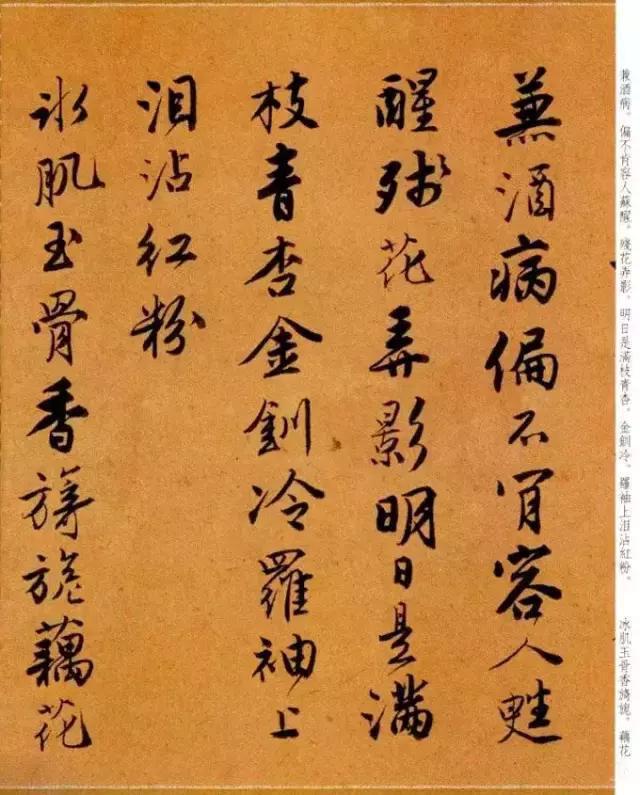 兼酒病。偏不肯容人蘇醒。殘花弄影。明日是滿枝青杏。金釧冷。羅袖上泪沾紅粉。 冰肌玉骨香旖旎。藕花
兼酒病偏不肯容人甦
醒殘花弄影明日是滿
枝青杏金釧冷羅袖上
泪沾紅粉
冰肌玉骨香旖旎藕花